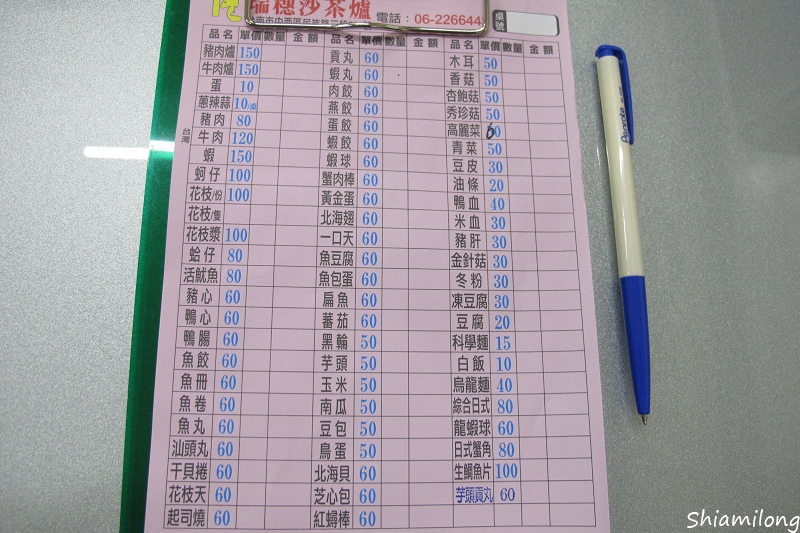 瑞穗沙茶爐
台南市中西區民族路三段
電話：06-226644
桌號
品名 單價 數量 金額 品名 單價 數量 金額 品名 單價 數量 金額
豬肉爐 150 貢丸 60 木耳 50
牛肉爐 150 蝦丸 60 香菇 50
蛋 10 肉餃 60 杏鮑菇 50
蔥辣蒜 10/桌 燕餃 60 秀珍菇 50
豬肉 80 蛋餃 60 高麗菜 60
台灣 牛肉 120 蝦餃 60 青菜 50
蝦 150 蝦球 60 豆皮 30
蚵仔 100 蟹肉棒 60 油條 20
花枝/份 100 黃金蛋 60 鴨血 40
花枝/隻 北海翅 60 米血 30
花枝漿 100 一口天 60 豬肝 30
蛤仔 80 魚豆腐 60 金針菇 30
活魷魚 80 魚包蛋 60 冬粉 30
豬心 60 扁魚 60 凍豆腐 30
鴨心 60 蕃茄 60 豆腐 20
鴨腸 60 黑輪 50 科學麵 15
魚餃 60 芋頭 50 白飯 10
魚冊 60 玉米 50 烏龍麵 40
魚卷 60 南瓜 50 綜合日式 80
魚丸 60 豆包 50 龍蝦球 60
汕頭丸 60 鳥蛋 50 日式蟹角 80
干貝捲 60 北海貝 60 生鯛魚片 100
花枝天 60 芝心包 60 芋頭貢丸 60
起司燒 60 紅蟳棒 60
Shiamilong